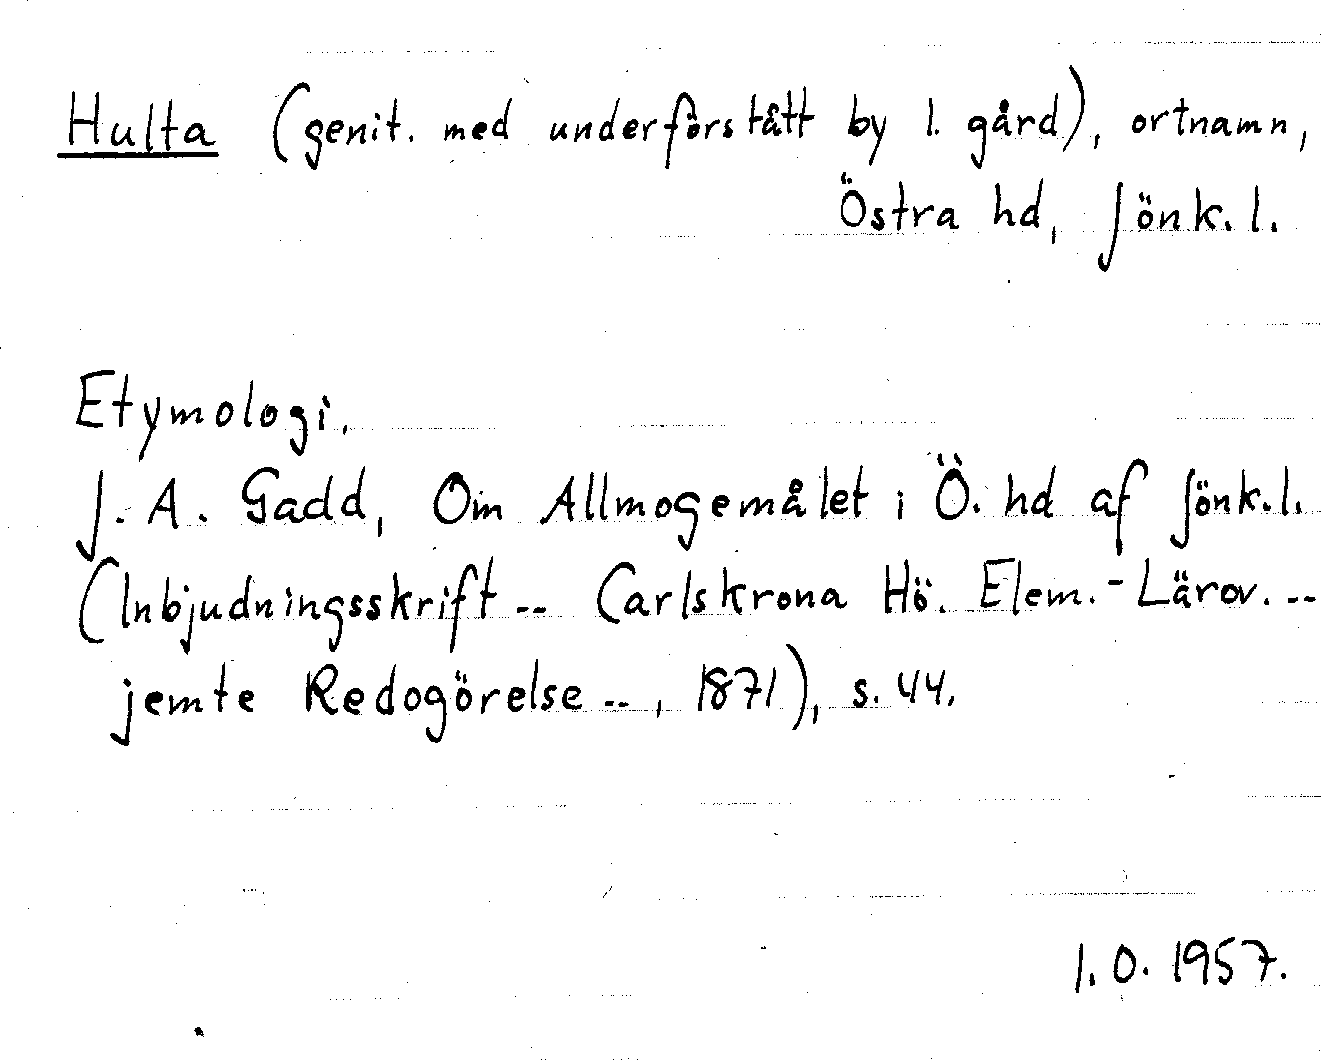 Hulta (genit. med underförstått by l. gård), ortnamn,
Östra hd, Jönk. l.
Etymologi.
J. A. Gadd, Om Allmogemålet i Ö. hd af Jönk. l.
(Inbjudningsskrift -- Carlskrona Hö. Elem.-Lärov. --
jemte Redogörelse --, 1871), s. 44.
I. O. 1957.